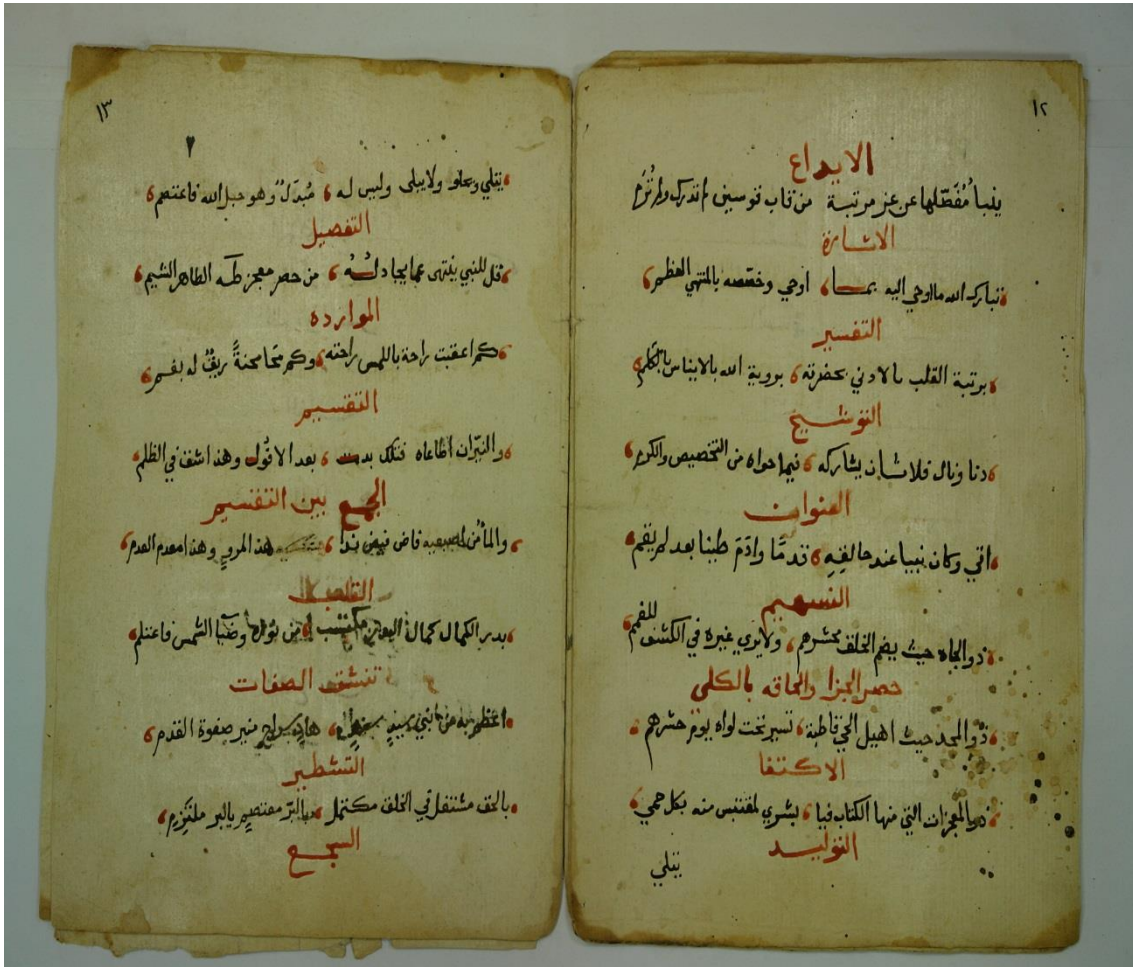 ١٢
الايداع
ينبأ مُفَصّلها عن عز مرتبة من قاب قوسين لم تدرك ولم تُرَم
الاشارة
تبارك الله ما اوحي اليه بمـا، اوحي وخصّصه بالمنتهي العظم،
التفسير
برتبة القلب بالادني بحضرته، بروية الله بالايناس بالكلم،
التوشيح
دنا ونال فلا شان يشاركه، فيما حواه من التخصيص والكرم،
العنوان
اقي وكان نبيا عند خالقه، قدمًا وآدم طينا بعد لم يقم،
التسهيم
ذو الجاه حيث يضم الخلق محشرهم، ولا يري غيره في الكشف للغمم،
حصر الجزا والحاقه بالكلي
ذو المجد حيث اهيل الحي قاطبة، تسير تحت لواه يوم حشرهم،
الاكتفا
ذو المعجزات التي منها الكتاب فيا، بشري لمقتبس منه بكل حمي،
التوليد
يتلي
١٣
يتلي ويحلو ولا يبلي وليس له، مُبدّل وهو حبل الله فاعتصم،
التفصيل
قل للنبي ينتهى عما يجادله، من حصر معجز طه الطاهر الشيم،
الموارده
كم اعقبت راحة باللمس راحته، وكم محا محنةً ريقٌ له بفم،
التقسيم
والنيّران اطاعاه فتلك بدت، بعد الافُول وهذا شق في الظلم،
الجمع بين التقسيم
والمآء من اصبعيه فاض فيض ندا، هذا المروي وهذا معدم العدم،
القلب
بدر الكمال كمال البدر مكتسب، من نوره وضيا الشمس فاعتلم،
تنسّق الصفات
اعظم به من نبي سيد سند، هاد سراج منير صفوة القدم،
التشطير
بالحق مشتغل في الخلق مكتمل، بالبرّ معتصم بالبر ملتزم،
السجع